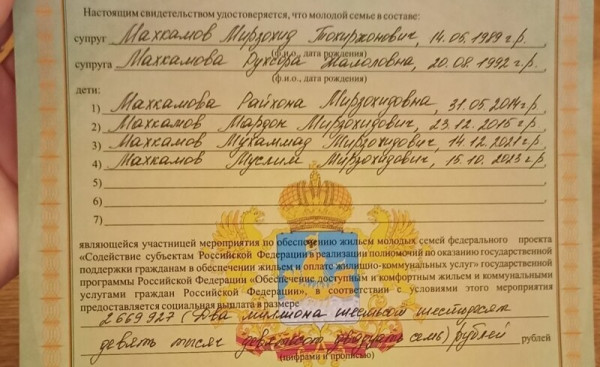 Настоящим свидетельством удостоверяется, что молодой семье в составе:
супруг Махкамов Мирзохид Тохиржонович, 14.05.1989 г.р.
(ф.и.о., дата рождения)
супруга Махкамова Рухсора Жамоловна, 20.08.1992 г.р.
(ф.и.о., дата рождения)
дети:
1) Махкамова Райхона Мирзохидовна, 31.05.2014 г.р.
2) Махкамов Мардон Мирзохидович, 23.12.2015 г.р.
3) Махкамов Мухаммад Мирзохидович, 14.12.2021 г.р.
4) Махкамов Муслим Мирзохидович, 15.10.2023 г.р.
5)
6)
7)
являющейся участницей мероприятия по обеспечению жильем молодых семей федерального проекта
«Содействие субъектам Российской Федерации в реализации полномочий по оказанию государственной
поддержки гражданам в обеспечении жильем и оплате жилищно-коммунальных услуг» государственной
программы Российской Федерации «Обеспечение доступным и комфортным жильем и коммунальными
услугами граждан Российской Федерации», в соответствии с условиями этого мероприятия
предоставляется социальная выплата в размере
2 669 927 (Два миллиона шестьсот шестьдесят
девять тысяч девятьсот двадцать семь) рублей рублей
(цифрами и прописью)